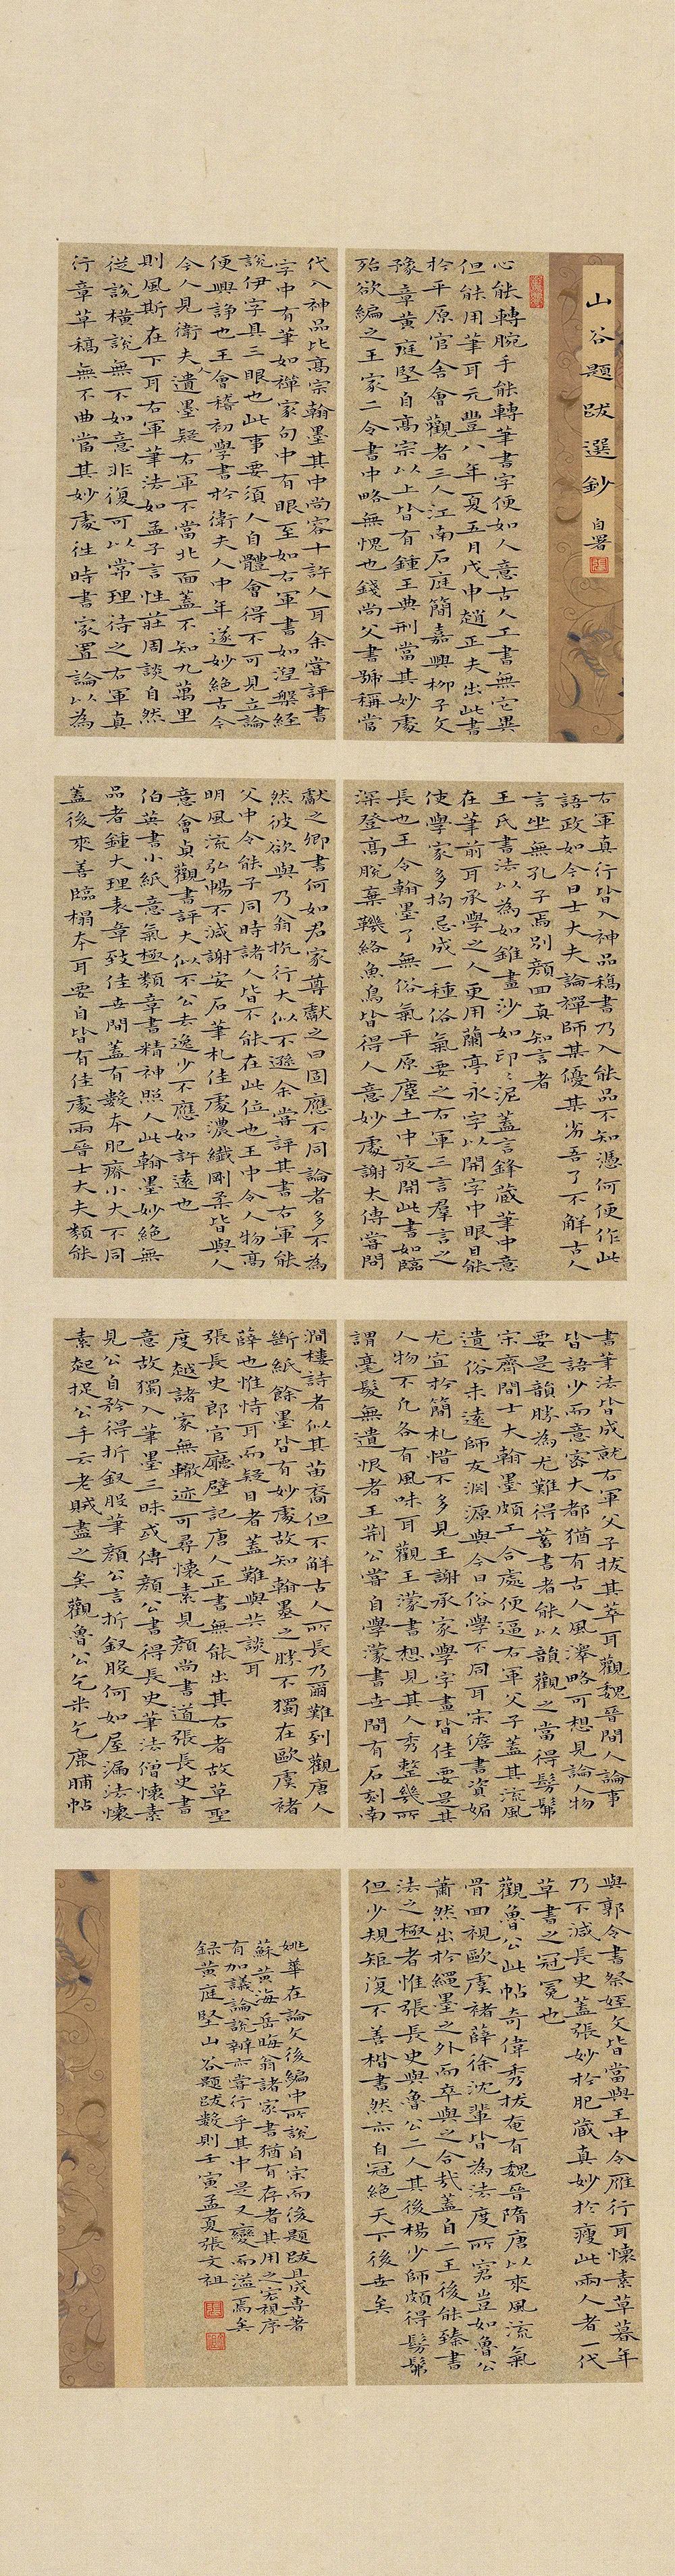 山谷題跋選鈔 自署
心能轉腕手能轉筆書字便如人意古人工書無它異
但能用筆耳元豐八年夏五月戊申趙正夫出此書
於平原官舍會觀者三人江南石庭簡嘉興柳子文
豫章黃庭堅自高宗以上皆有鍾王典刑當其妙處
殆欲編之王家二令書中略無愧也錢尚父書號稱當
代入神品比高宗翰墨其中尚容十許人耳余嘗評書
字中有筆如禪家句中有眼至如右軍書如涅槃經
說伊字具三眼也此事要須人自體會得不可見立論
便興諍也王會稽初學書於衛夫人中年遂妙絕古今
今人見衛夫人遺墨疑右軍不當北面蓋不知九萬里
則風斯在下耳右軍筆法如孟子言性莊周談自然
從說橫說無不如意非復可以常理待之右軍真
行章草稿無不曲當其妙處往時書家置論以為
右軍真行皆入神品稿書乃入能品不知憑何便作此
語政如今日士大夫論禪師某優某劣吾了不解古人
言坐無孔子焉別顏回真知言者
王氏書法以為如錐畫沙如印印泥蓋言鋒藏筆中意
在筆前耳承學之人更用蘭亭永字以開字中眼目能
使學家多拘忌成一種俗氣要之右軍二言群言之
長也王令翰墨了無俗氣平原塵土中夜開此書如臨
深登高脫棄羈絡魚鳥皆得人意妙處謝太傅嘗問
獻之卿書何如君家尊獻之曰固應不同論者多不為
然彼欲與乃翁抗行大似不遜余嘗評其書右軍能
父中令能子同時諸人皆不能在此位也王中令人物高
明風流弘暢不減謝安石筆札佳處濃纖剛柔皆與人
意會貞觀書評大似不公去逸少不應如許遠也
伯英書小紙意氣極類章書精神照人此翰墨妙絕無
品者鍾大理表章致佳世間蓋有數本肥瘠小大不同
蓋後來善臨榻本耳要自皆有佳處兩晉士大夫類能
書筆法皆成就右軍父子拔其萃耳觀魏晉間人論事
皆語少而意密大都猶有古人風澤略可想見論人物
要是韻勝為尤難得蓄書者能以韻觀之當得髣髴
宋齊間士大翰墨頗工合處便逼右軍父子蓋其流風
遺俗未遠師友淵源與今日俗學不同耳宋儋書資媚
尤宜於簡札惜不多見王謝承家學字畫皆佳要是其
人物不凡各有風味耳觀王濛書想見其人秀整幾所
謂毫髮無遺恨者王荊公嘗自學濛書世間有石刻南
澗樓詩者似其苗裔但不解古人所長乃爾難到觀唐人
斷紙餘墨皆有妙處故知翰墨之勝不獨在歐虞褚
薛也惟恃耳而疑目者蓋難與共談耳
張長史郎官廳壁記唐人正書無能出其右者故草聖
度越諸家無轍迹可尋懷素見顏尚書道張長史書
意故獨入筆墨三昧或傳顏公書得長史筆法僧懷素
見公自矜得折釵股筆顏公言折釵股何如屋漏法懷
素起捉公手云老賊盡之矣觀魯公乞米乞鹿脯帖
與郭令書祭姪文皆當與王中令雁行耳懷素草暮年
乃不減長史蓋張妙於肥藏真妙於瘦此兩人者一代
草書之冠冕也
觀魯公此帖奇偉秀拔奄有魏晉隋唐以來風流氣
骨回視歐虞褚薛徐沈輩皆為法度所窘豈如魯公
蕭然出於繩墨之外而卒與之合哉蓋自二王後能臻書
法之極者惟張長史與魯公二人其後楊少師頗得髣髴
但少規矩復不善楷書然亦自冠絕天下後世矣
姚華在論文後編中所說自宋而後題跋且成專著
蘇黃海岳晦翁諸家書猶有存者其用之宏視序
有加議論說辨亦嘗行乎其中是又變而溢焉矣
錄黃庭堅山谷題跋數則壬寅孟夏張文祖